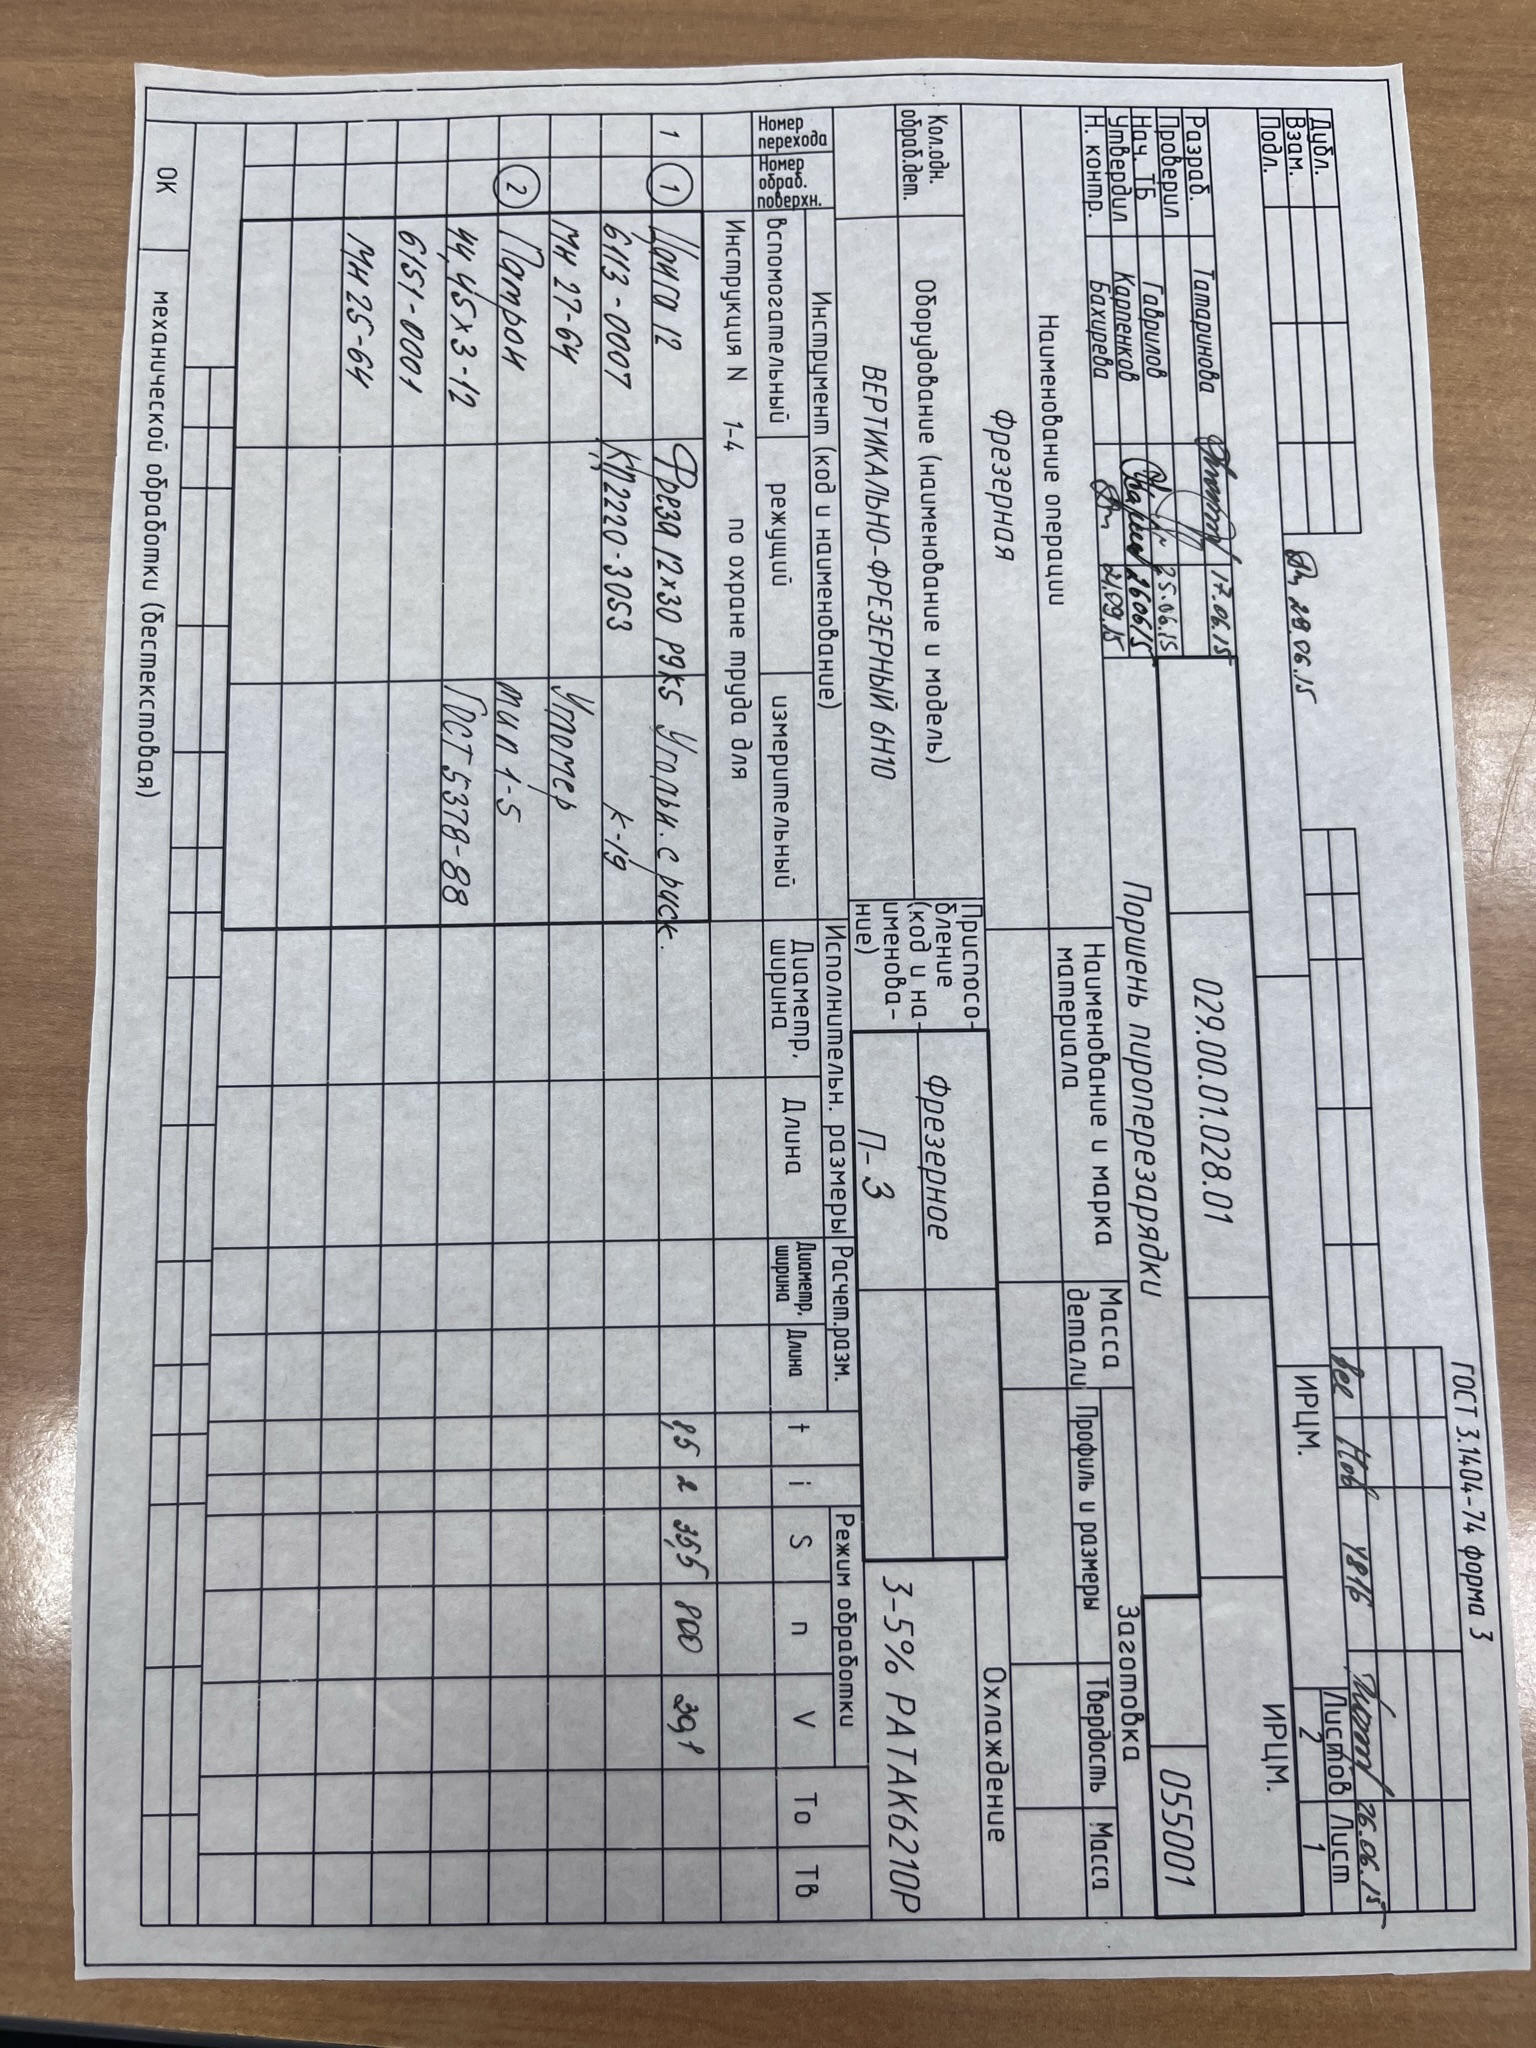 ГОСТ 3.1404-74 форма 3
Дубл.
Взам.
Подл.
29.06.15
Нов 4816 26.06.15
ИРЦМ. Листов 2 Лист 1
ИРЦМ.
Разраб. Татаринова 17.06.15
Проверил
Нач. ТБ Гаврилов 25.06.15
Утвердил Карпенков 260615
Н. контр. Бахирева 21.09.15
029.00.01.028.01
055001
Поршень пироперезарядки
Наименование операции
Наименование и марка материала
Масса детали
Заготовка
Профиль и размеры Твердость Масса
Фрезерная
Кол.одн. обраб.дет.
Оборудование (наименование и модель)
ВЕРТИКАЛЬНО-ФРЕЗЕРНЫЙ 6Н10
Приспосо-
бление
(код и на-
именова-
ние)
Фрезерное
П-3
Охлаждение
3-5% РАТАК6210Р
Номер перехода
Номер обраб. поверхн.
Инструмент (код и наименование)
вспомогательный режущий измерительный
Исполнительн. размеры
Диаметр, ширина Длина
Расчет.разм.
Диаметр, ширина Длина
t i
Режим обработки
S n V
То Тв
Инструкция N 1-4 по охране труда для
1 1 Цанга 12 Фреза 12х30 Р9К5 Угольн. с риск. 8,5 2 35,5 800 30,1
6113-0007 КП2220-3053 К-19
МН 27-64 Угломер
2 Патрон тип 1-5
44,45х3-12 ГОСТ 5378-88
6151-0001
МН 25-64
ОК механической обработки (бестекстовая)